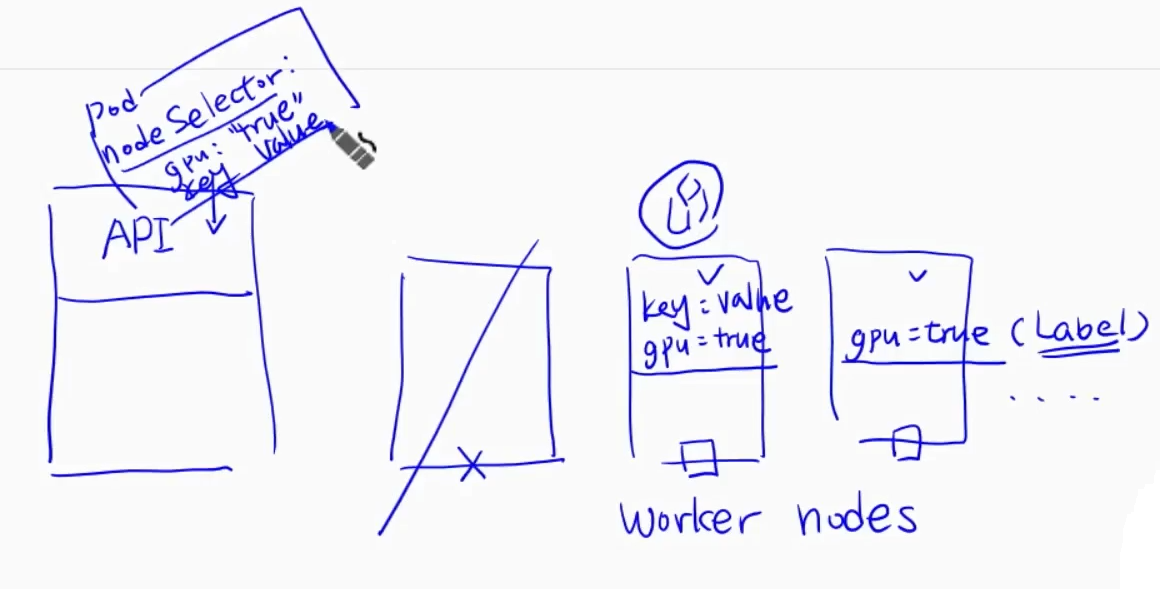 pod
nodeSelector:
gpu: "true"
key value
API
key = value
gpu = true
gpu = true (Label)
.....
worker nodes